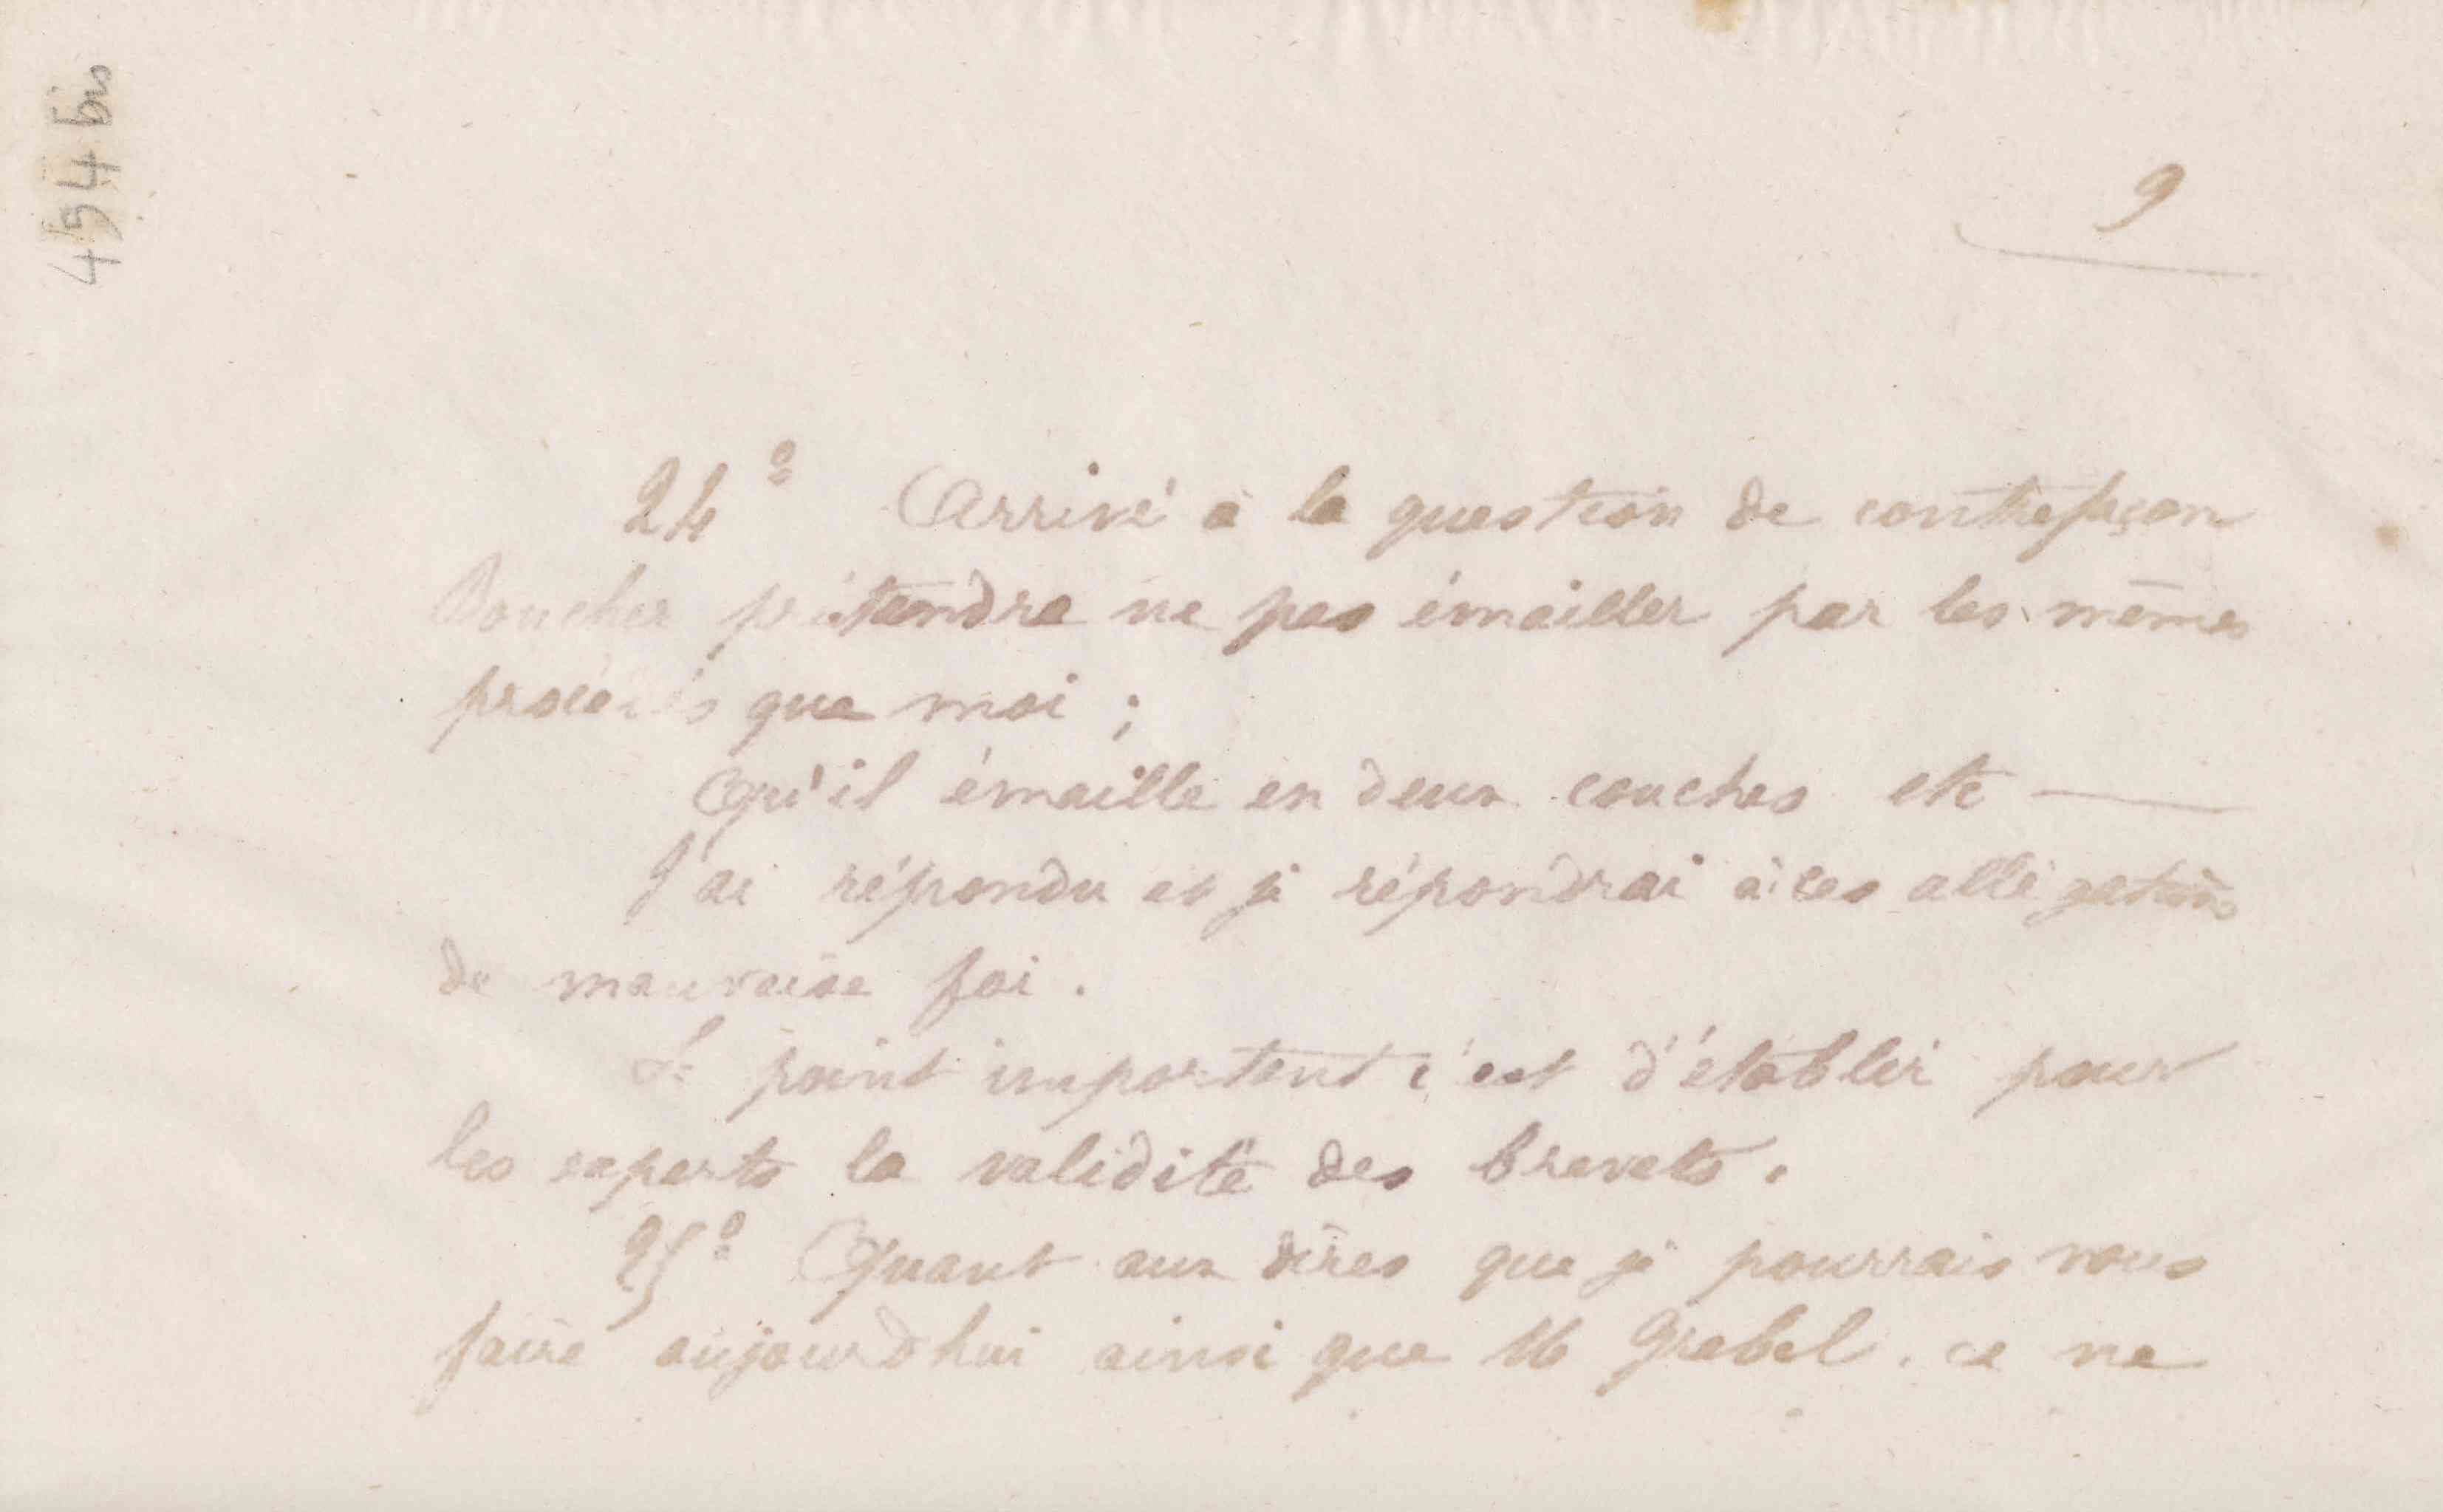 494 bis
9
24° Arrivé à la question de contrefaçon
Boucher prétendra ne pas émailler par les mêmes
procédés que moi ;
Qu'il émaille en deux couches etc —
J'ai répondu et je répondrai à ces allégations
de mauvaise foi .
Le point important c'est d'établir pour
les experts la validité des brevets.
25° Quant aux dires que je pourrais vous
faire aujourd'hui ainsi que M Grebel . ce ne